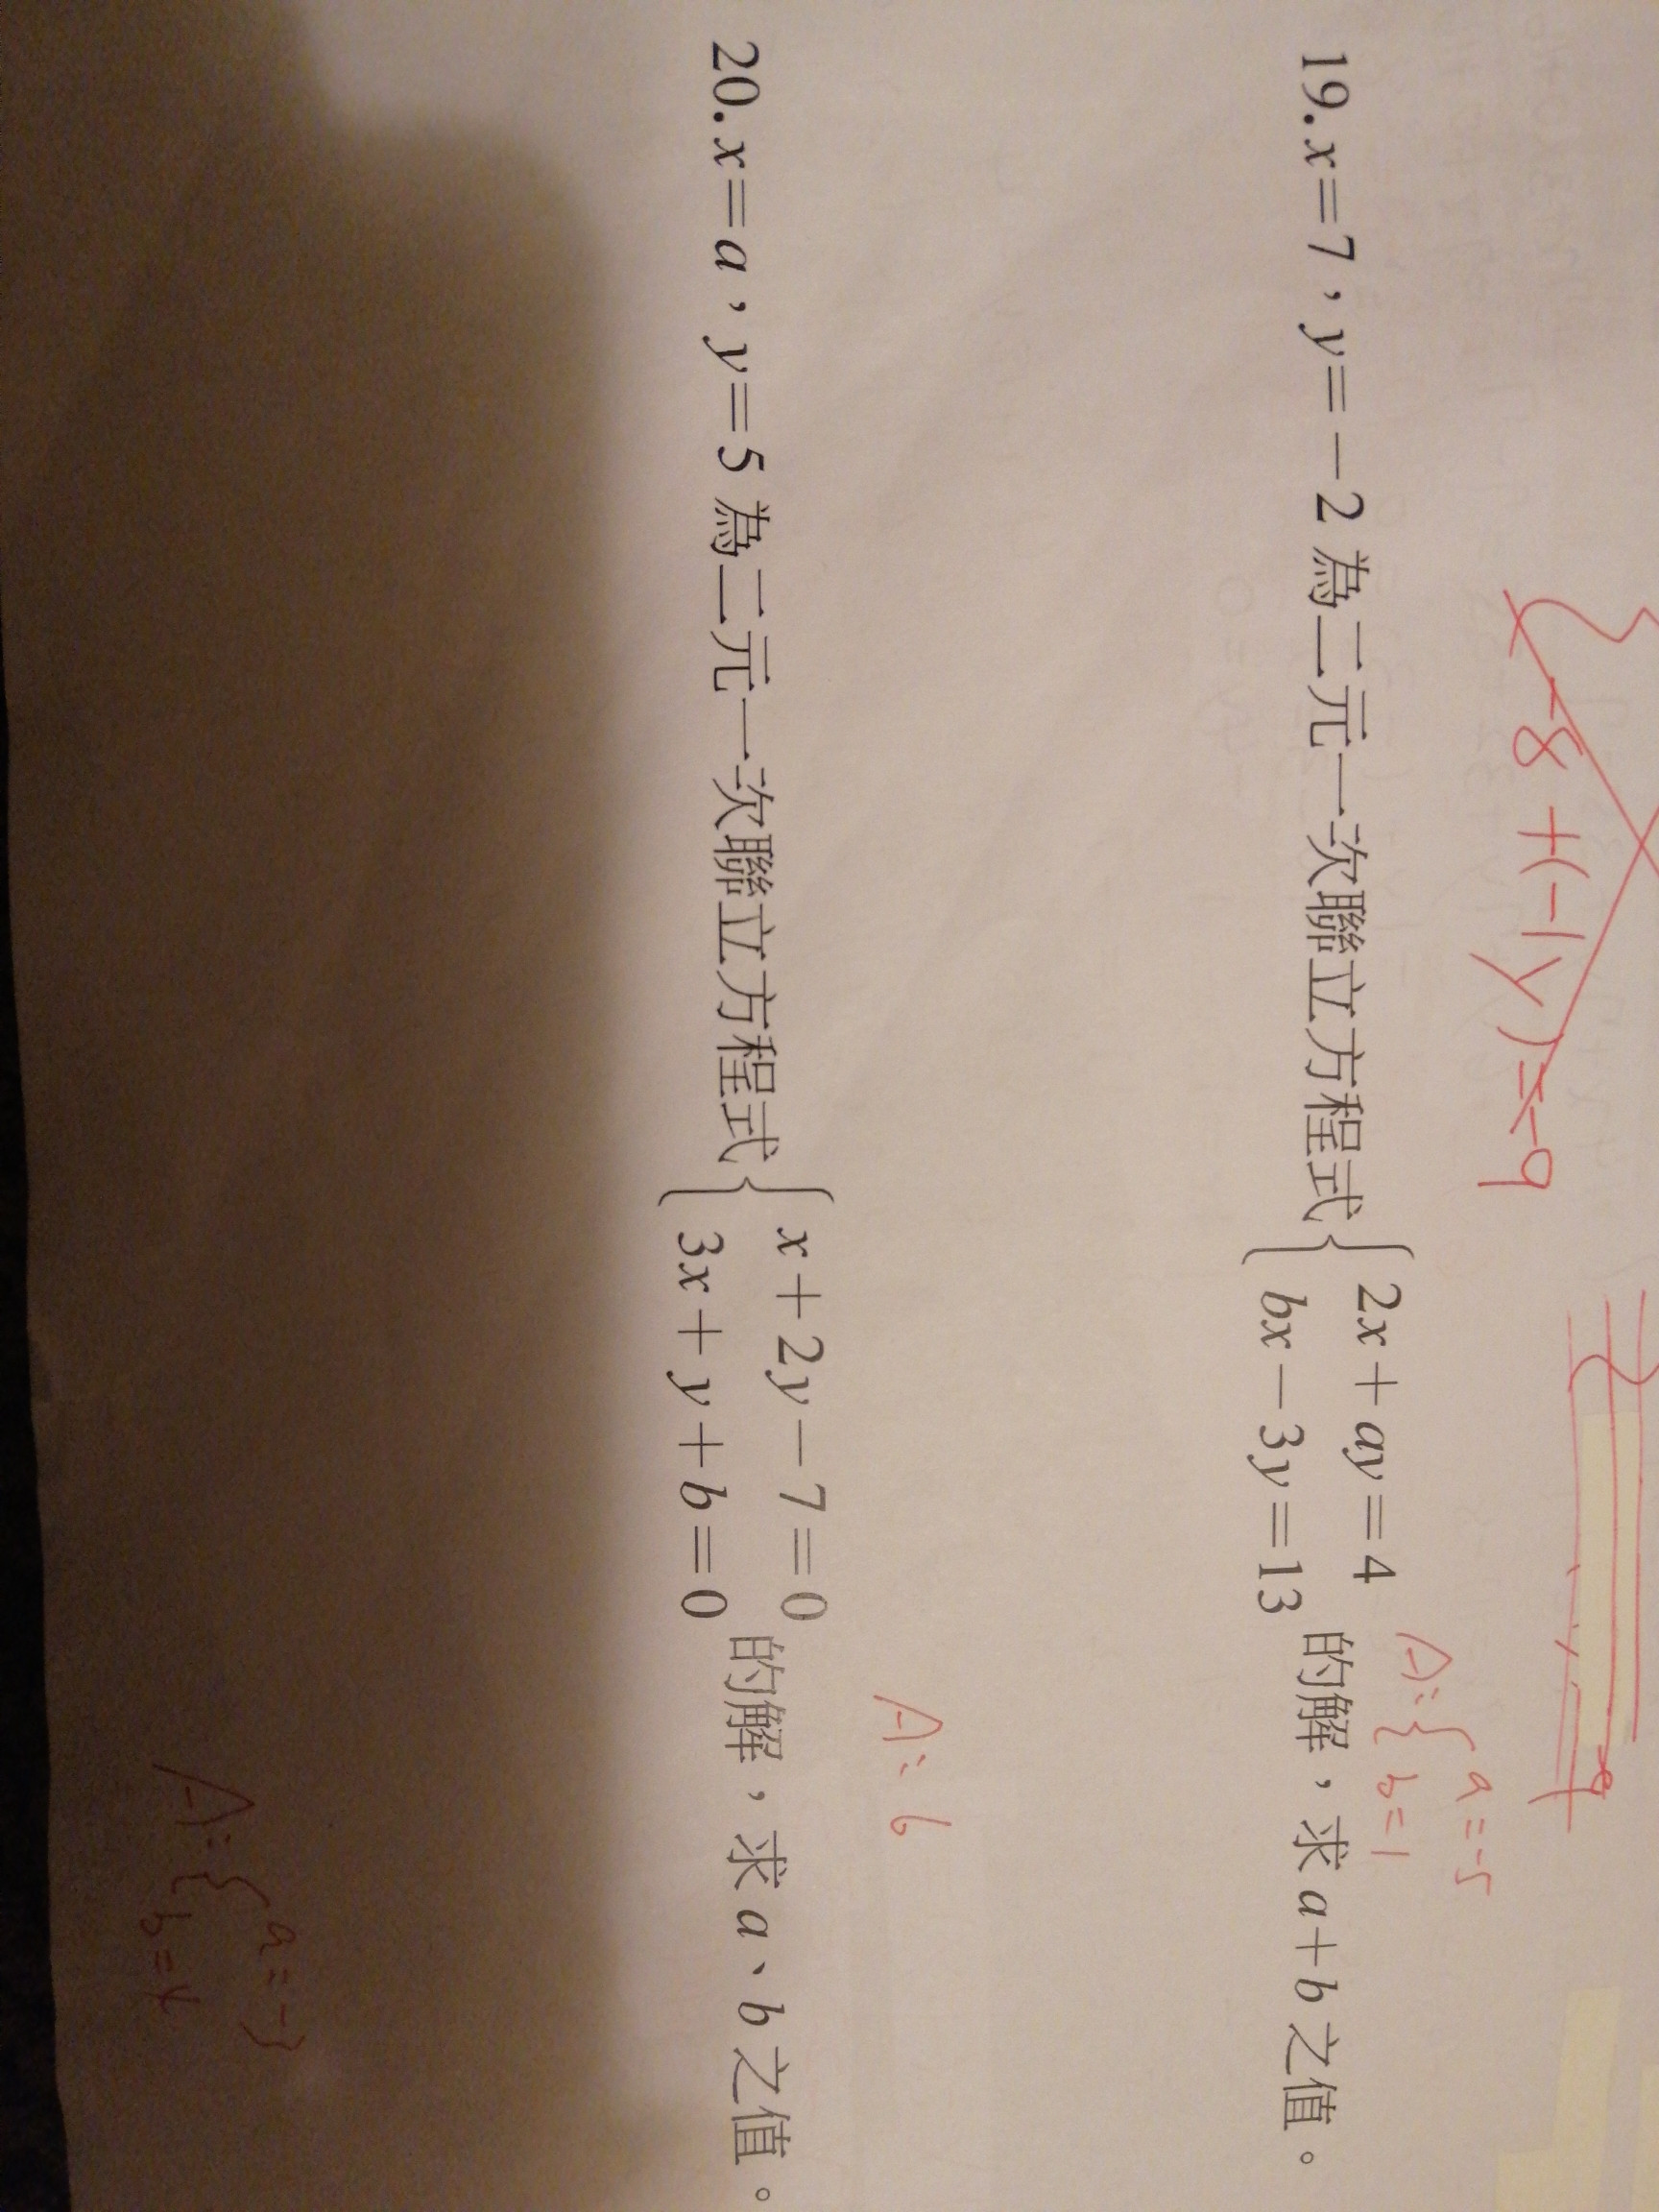 -8+(-1y)=-9
19. x=7，y=-2 為二元一次聯立方程式{2x+ay=4
bx-3y=13 的解，求 a+b 之值。
A:{a=-5
b=1
A:6
20. x=a，y=5 為二元一次聯立方程式{x+2y-7=0
3x+y+b=0 的解，求 a、b 之值。
A:{a=-3
b=4